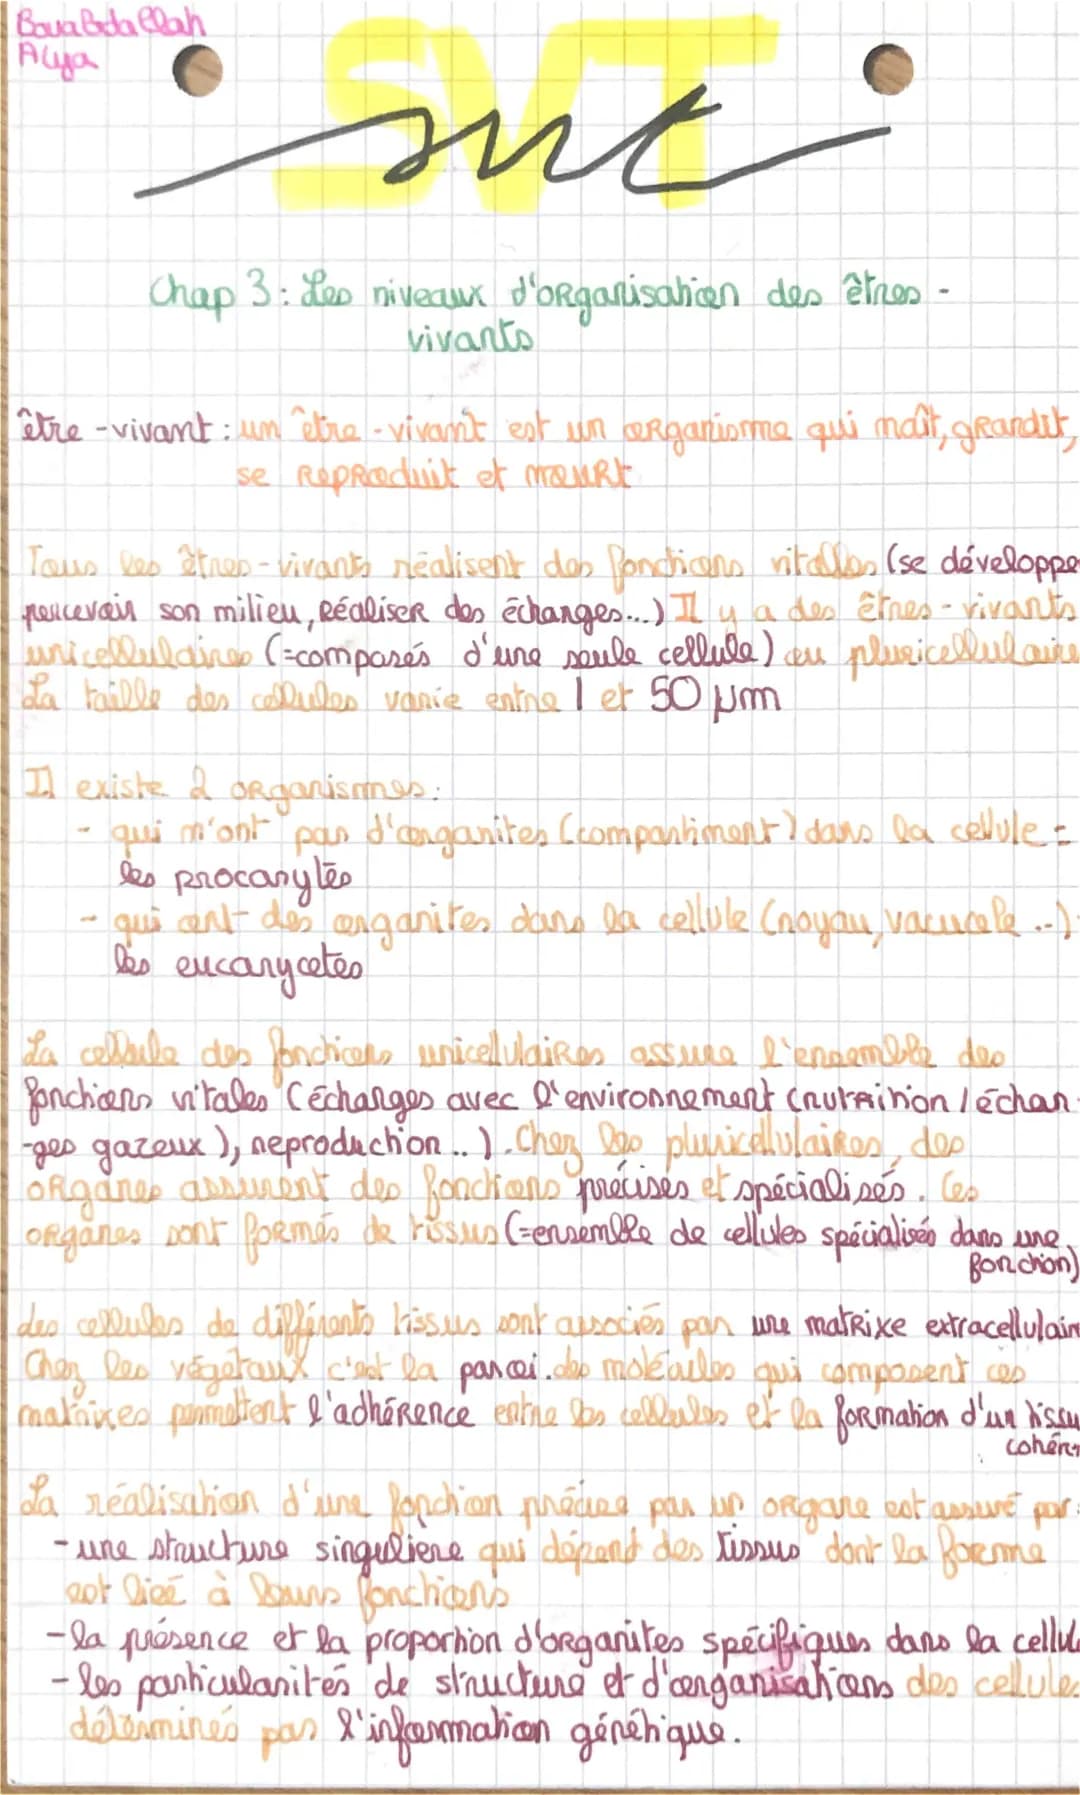 Bouabdallah
Alya
SVT
svt
Chap 3 : Les niveaux d'organisation des êtres -
vivants
être - vivant : un être - vivant est un organisme qui naît, grandit,
se reproduit et meurt
Tous les êtres - vivants réalisent des fonctions vitalles (se développe
percevoir son milieu, réaliser des échanges...) Il y a des êtres - vivants
unicellulaires (=composés d'une seule cellule) ou pluricellulaire
La taille des cellules varie entre 1 et 50 µm
Il existe 2 organismes :
- qui n'ont pas d'organites (compartiment) dans la cellule =
les procaryotes
- qui ont des organites dans la cellule (noyau, vacuole ..)
les eucarycotes
La cellule des fonctions unicellulaires assure l'ensemble des
fonctions vitales (échanges avec l'environnement (nutrition / échan
-ges gazeux), reproduction ..). Chez les pluricellulaires, des
organes assurent des fonctions précises et spécialisés. Ces
organes sont formés de tissus (=ensemble de cellules spécialisés dans une
fonction)
des cellules de différents tissus sont associés par une matrixe extracellulair
Chez les végétaux c'est la paroi. des molécules qui composent ces
matrixes permettent l'adhérence entre les cellules et la formation d'un tissu
cohérent
La réalisation d'une fonction précise par un organe est assuré par :
- une structure singulière qui dépend des tissus dont la forme
est liée à leurs fonctions
- la présence et la proportion d'organites spécifiques dans la cellule
- les particularités de structure et d'organisations des cellules
déterminés par l'information génétique.